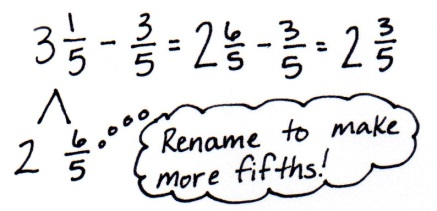 3 1/5 - 3/5 = 2 6/5 - 3/5 = 2 3/5
2 6/5
Rename to make
more fifths!